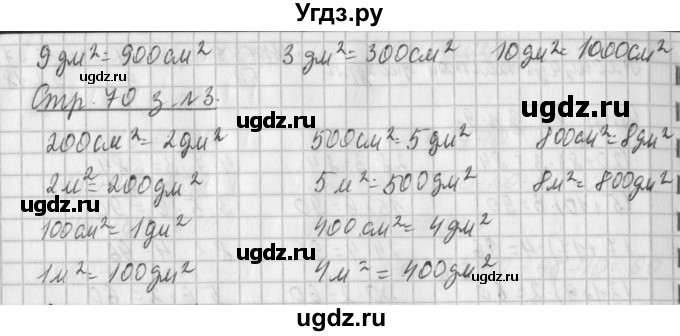 Угдз.ру
9дм²=900см² 3дм²=300см² 10дм²=1000см²
ugdz.ru
Стр. 70 з.№3.
ugdz.ru
200см²=2дм² 500см²=5дм² 800см²=8дм²
ugdz.ru ugdz.ru
2м²=200дм² 5м²=500дм² 8м²=800дм²
ugdz.ru
100см²=1дм² 400см²=4дм²
ugdz.ru
1м²=100дм² 4м²=400дм²
ugdz.ru ugdz.ru